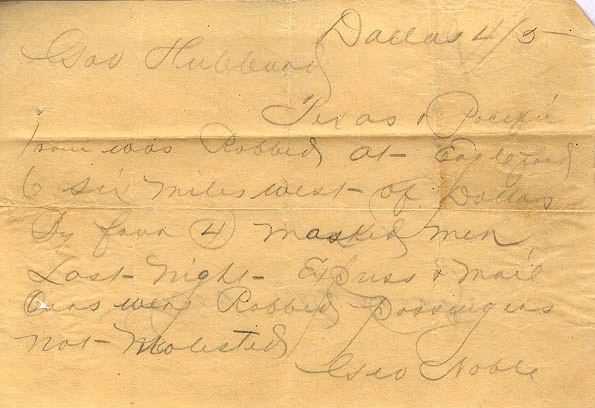 Dallas 4/5
Gov Hubbard
Texas & Pacific
Train was Robbed at Eagle ford
6 six miles west of Dallas
By four (4) masked men
Last night Express & mail
Cars were Robbed passengers
not molested
Geo Noble